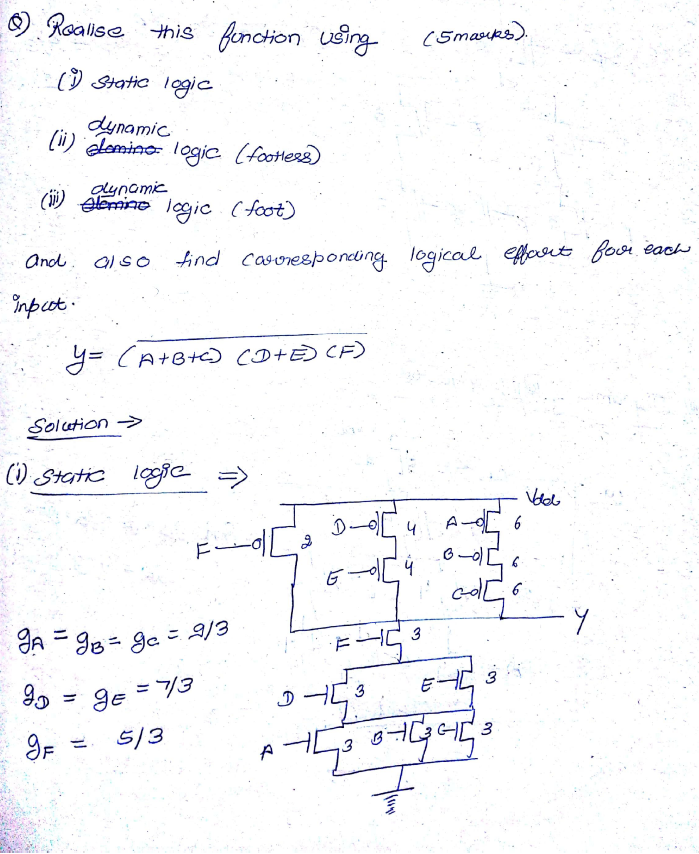 Q) Realise this function using (5marks).
(i) Static logic
(ii) domino dynamic logic (footless)
(iii) domino dynamic logic (foot)
And also find corresponding logical effort for each
input.
y = (A+B+C) (D+E) (F)
Solution →
(i) Static logic ⇒
Vdd
F 2 D 4 A 6
E 4 B 6
C 6
Y
gA = gB = gC = 9/3
F 3
gD = gE = 7/3
D 3 E 3
gF = 5/3
A 3 B 3 C 3